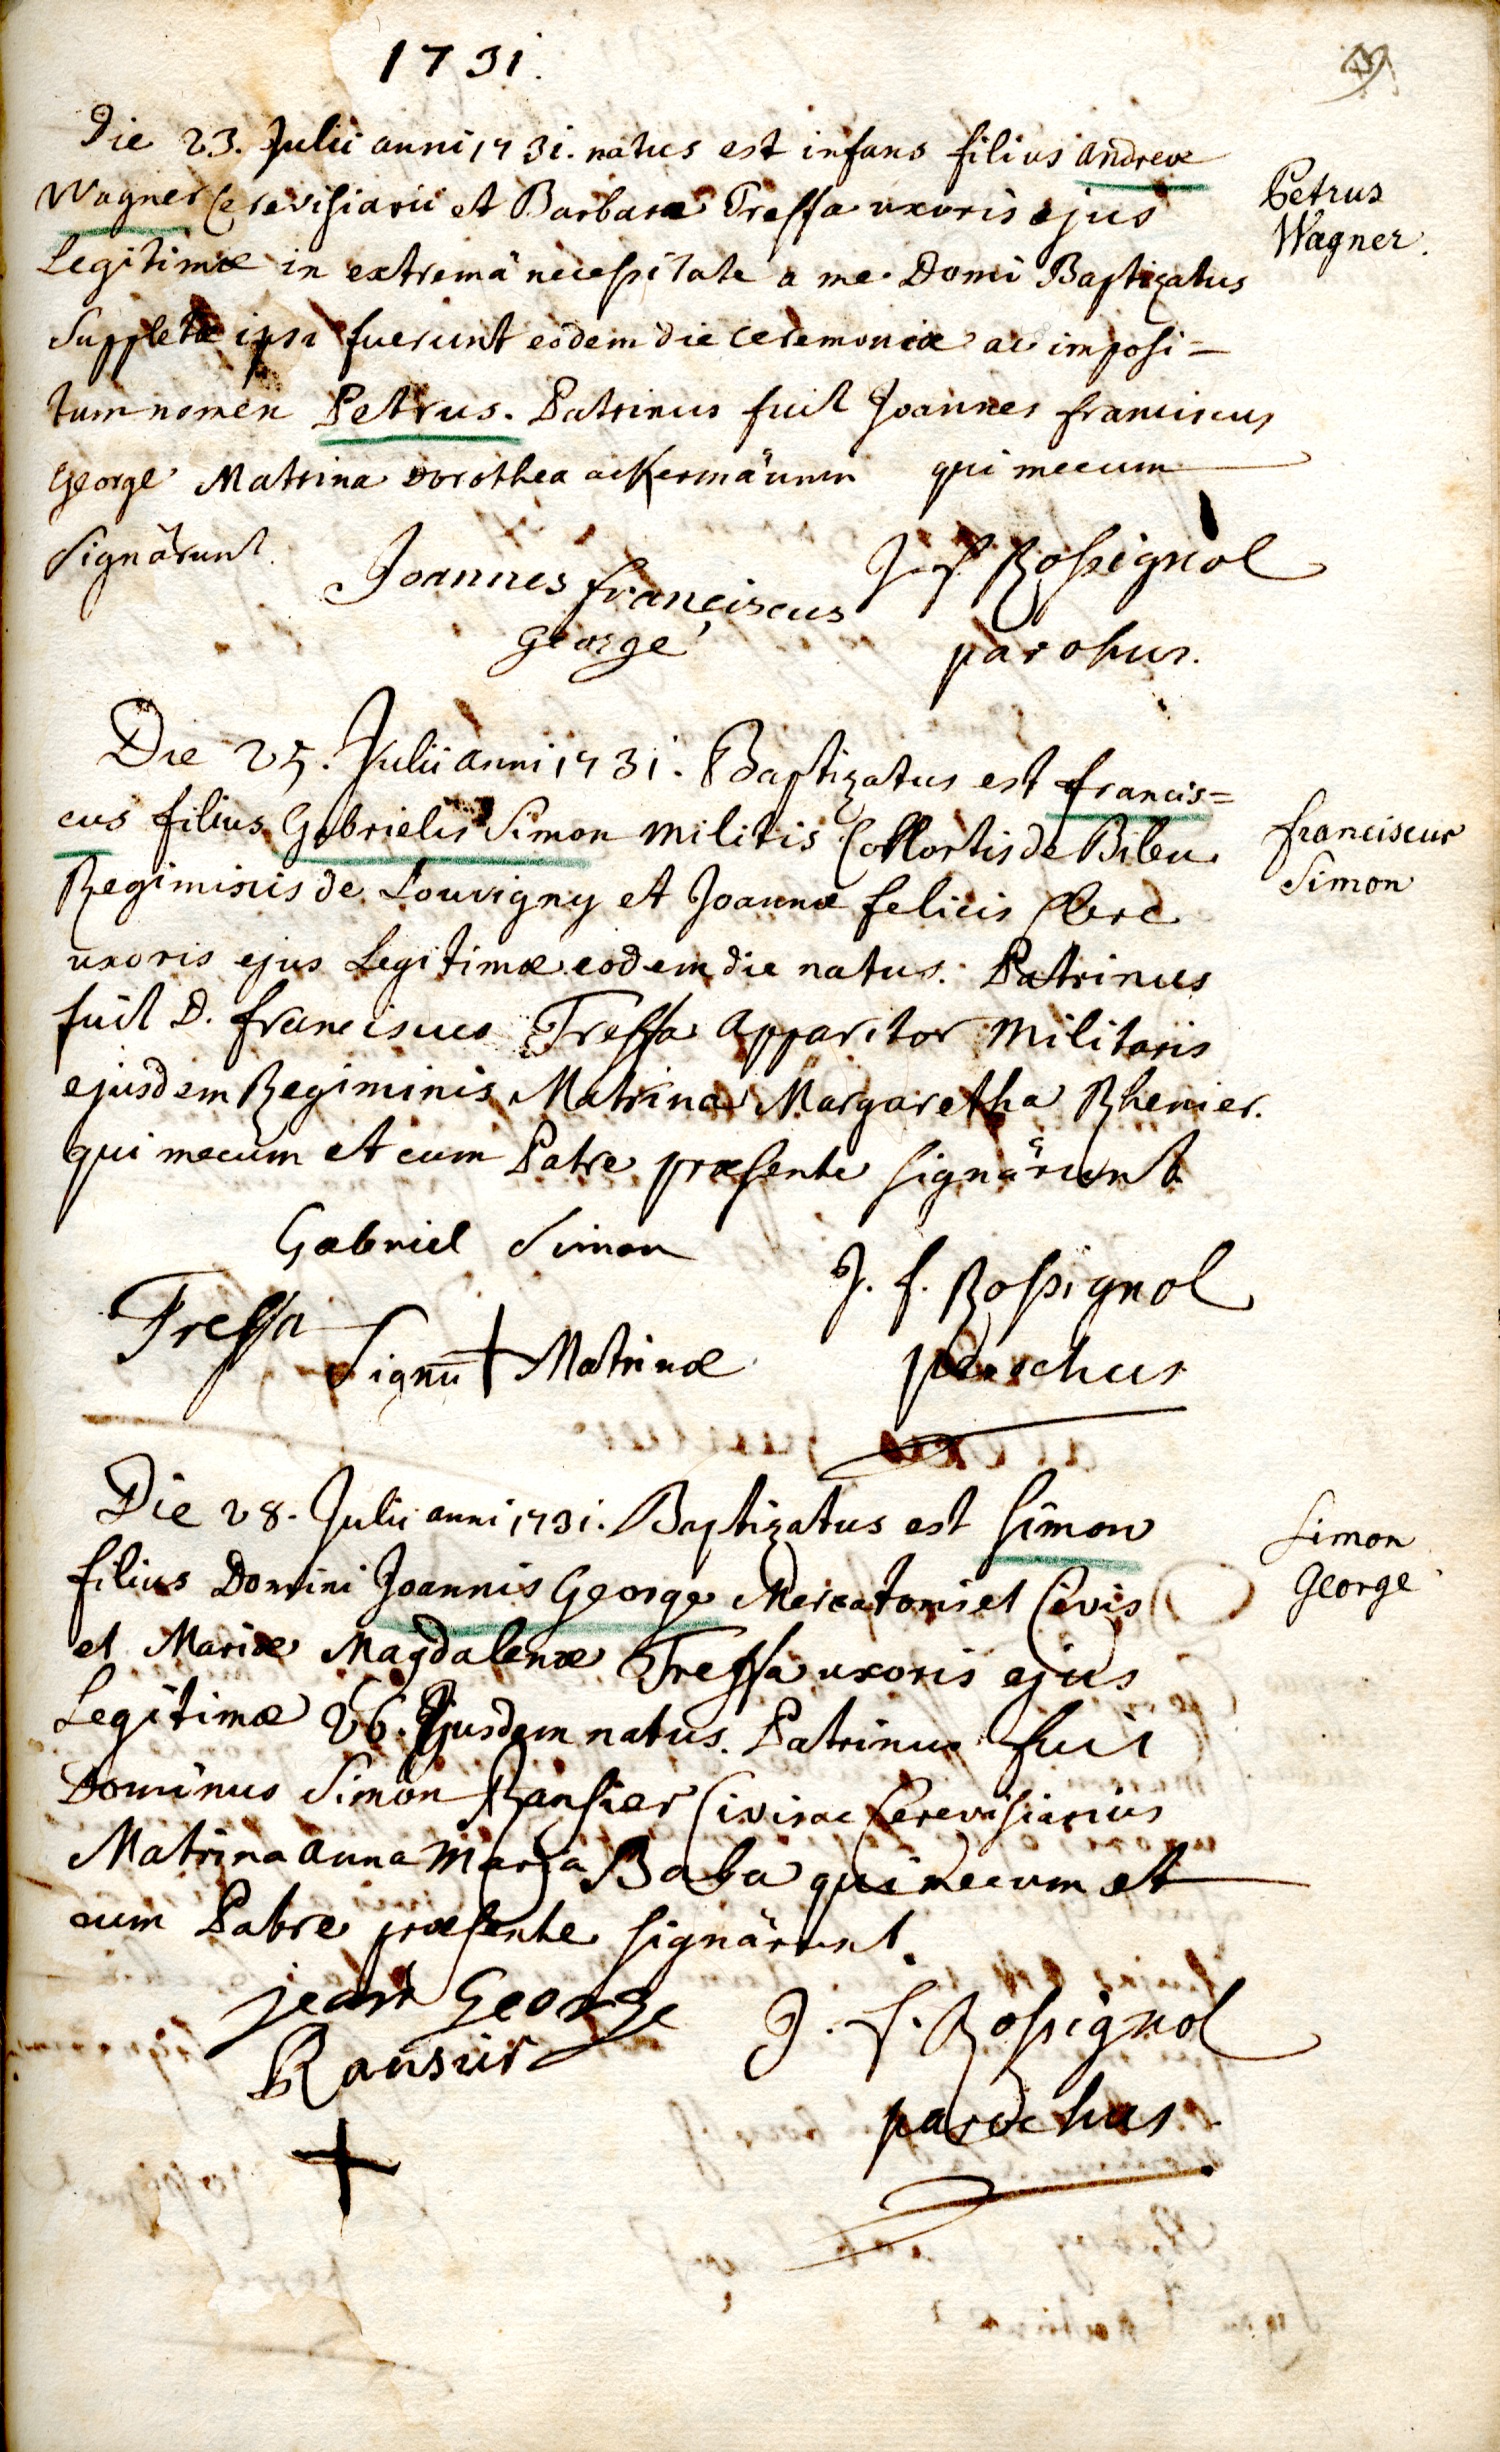 1731.
Die 23. Julii anni 1731. natus est infans filius andreæ
Wagner Cerevisiarii et Barbaræ Tressa uxoris ejus
Legitimæ in extremâ necessitate a me Domi Baptizatus
Suppletæ ipsi fuerunt eodem die ceremoniæ ac imposi=
tum nomen Petrus. Patrinus fuit Joannes franciscus
George Matrina Dorothea acKermännin qui mecum
Signârunt.
Joannes franciscus
george
J. f. Rossignol
parohus.
Petrus
Wagner.
Die 25. Julii anni 1731. Baptizatus est francis=
cus filius Gabrielis Simon Militis Cohortis de Bileu
Regiminis de Louvigny et Joannæ felicis Clerc
uxoris ejus Legitimæ eodem die natus. Patrinus
fuit D. franciscus Tressa Apparitor Militaris
ejusdem Regiminis Matrina Margaretha Rhenier.
qui mecum et cum Patre præsente signârunt
Gabriel Simon
Tressa
Signū + Matrinæ
J. f. Rossignol
parochus
franciscus
Simon
Die 28. Julii anni 1731. Baptizatus est Simon
filius Domini Joannis George Mercatoris et Civis
et Mariæ Magdalenæ Tressa uxoris ejus
Legitimæ 26. Ejusdem natus. Patrinus fuit
Dominus Simon Ransier Civis ac Cerevisiarius
Matrina anna Maria Baba qui mecum et
cum Patre præsente signârunt.
jean George
Ransur
+
J. f. Rossignol
parochus.
Simon
George